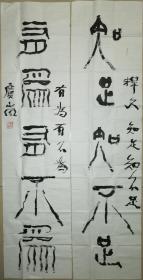 釋文 知足知不足
知足知不足
有为有不为
有為有不為